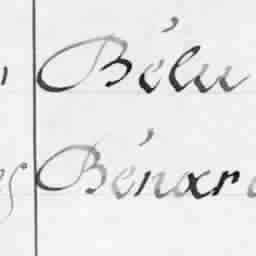 Bélu
Bénar